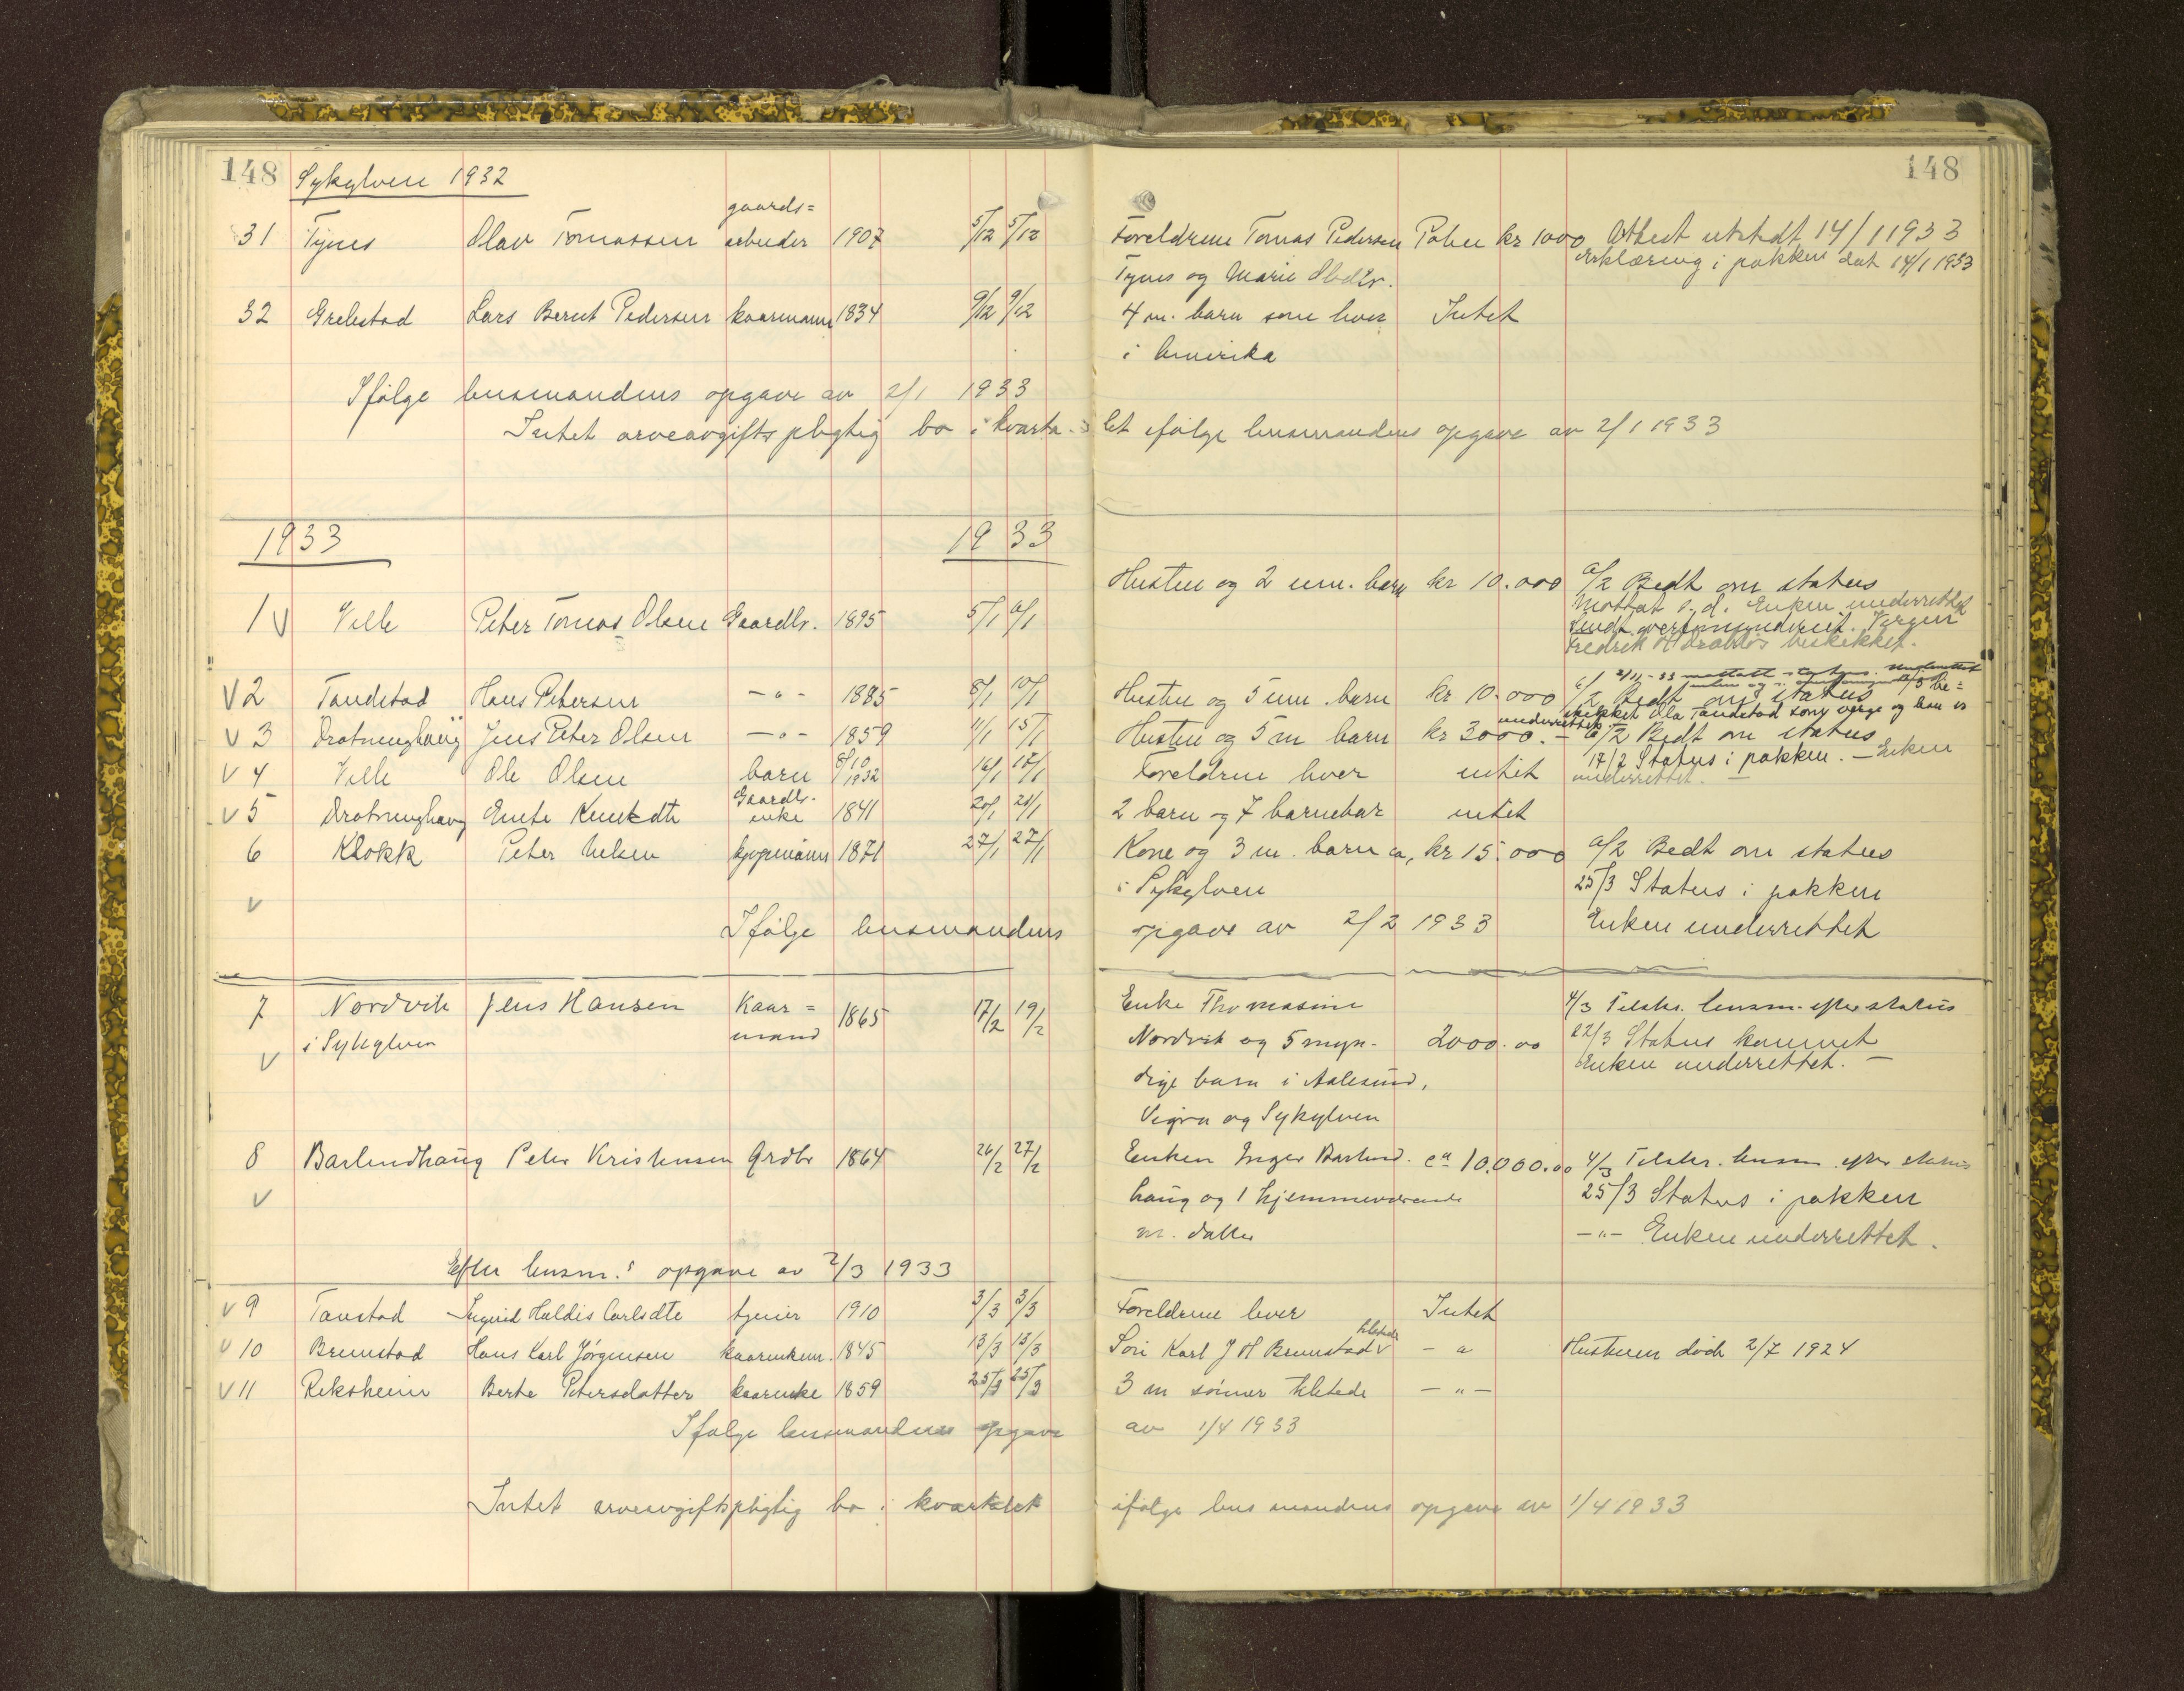 148 Sykylven 1932 148
gaards=
31 Tynes Olav Tomassen arbeider 1907 5/12 5/12 Foreldrene Tomas Pedersen Polise kr 1000 Attest utstedt 14/1 1933
erklæring i pakken dat 14/1 1933
Tynes og Marie Olsdtr.
32 Grebstad Lars Bernt Pedersen kaarmann 1834 9/12 9/12 4 m. barn som lever Intet
i Amerika
Ifölge lensmandens opgave av 2/1 1933
Intet arveavgiftspligtig bo i kvarta- let ifölge lensmandens opgave av 2/1 1933
1933 1933
Hustru og 2 um. barn kr 10.000 6/2 Bedt om status
Mottat s.d. Enken underrettet
1 v Velle Peter Tomas Olsen Gaardbr. 1895 5/1 6/1 Sendt overformynderiet. Vergen
Fredrik beskikket.
2/11-33 mottatt status.
v 2 Tandstad Hans Petersen -"- 1885 8/1 10/1 Hustru og 5 um. barn kr 10.000 6/2 Bedt om status
be=
skikket Ola Tandstad som verge og han er
underrettet
v 3 Drotninghaug Jens Peter Olsen -"- 1859 11/1 15/1 Hustru og 5 m barn kr 3000.- 6/2 Bedt om status
17/2 Status i pakken. - Enken
underrettet. -
v 4 Velle Ole Olsen barn 8/10 1932 16/1 17/1 Foreldrene lever intet
v 5 Drotninghaug Ente Knutsdtr Gaardbr. enke 1841 20/1 21/1 2 barn og 7 barnebar intet
6 Klokk Peter Nelsen kjøpmann 1871 27/1 27/1 Kone og 3 m. barn ca, kr 15.000 6/2 Bedt om status
i Sykylven 25/3 Status i pakken
v
Ifölge lensmandens opgave av 2/2 1933 Enken underrettet
7 Nordvik Jens Hansen Kaar= 1865 17/2 19/2 Enke Thomasine 4/3 Tilskr. lensm. efter status
v i Sykylven mand Nordvik og 5 myn- 2000.00 22/3 Status kommet
Enken underrettet. -
dige barn i Aalesund,
Vigra og Sykylven
8 Barlindhaug Peter Kristensen Grdbr 1864 26/2 27/2 Enken Inger Barlind- ca 10.000.00 4/3 Tilskr. lensm efter status
v haug og 1 hjemmeværende 25/3 Status i pakken
m. datter -"- Enken underrettet.
Efter lensm.s opgave av 2/3 1933
v 9 Tanstad Ingrid Haldis Carlsdtr tjener 1910 3/3 3/3 Foreldrene lever Intet
tilstede
v 10 Brunstad Hans Karl Jörgensen kaarenkem. 1845 13/3 13/3 Sön Karl J H Brunstad -"- Hustruen död 2/7 1924
v 11 Riksheim Berte Petersdatter kaarenke 1859 25/3 25/3 3 m sönner tilstede -"-
Ifölge lensmandens opgave av 1/4 1933
Intet arveavgiftspligtig bo i kvartalet ifölge lensmandens opgave av 1/4 1933